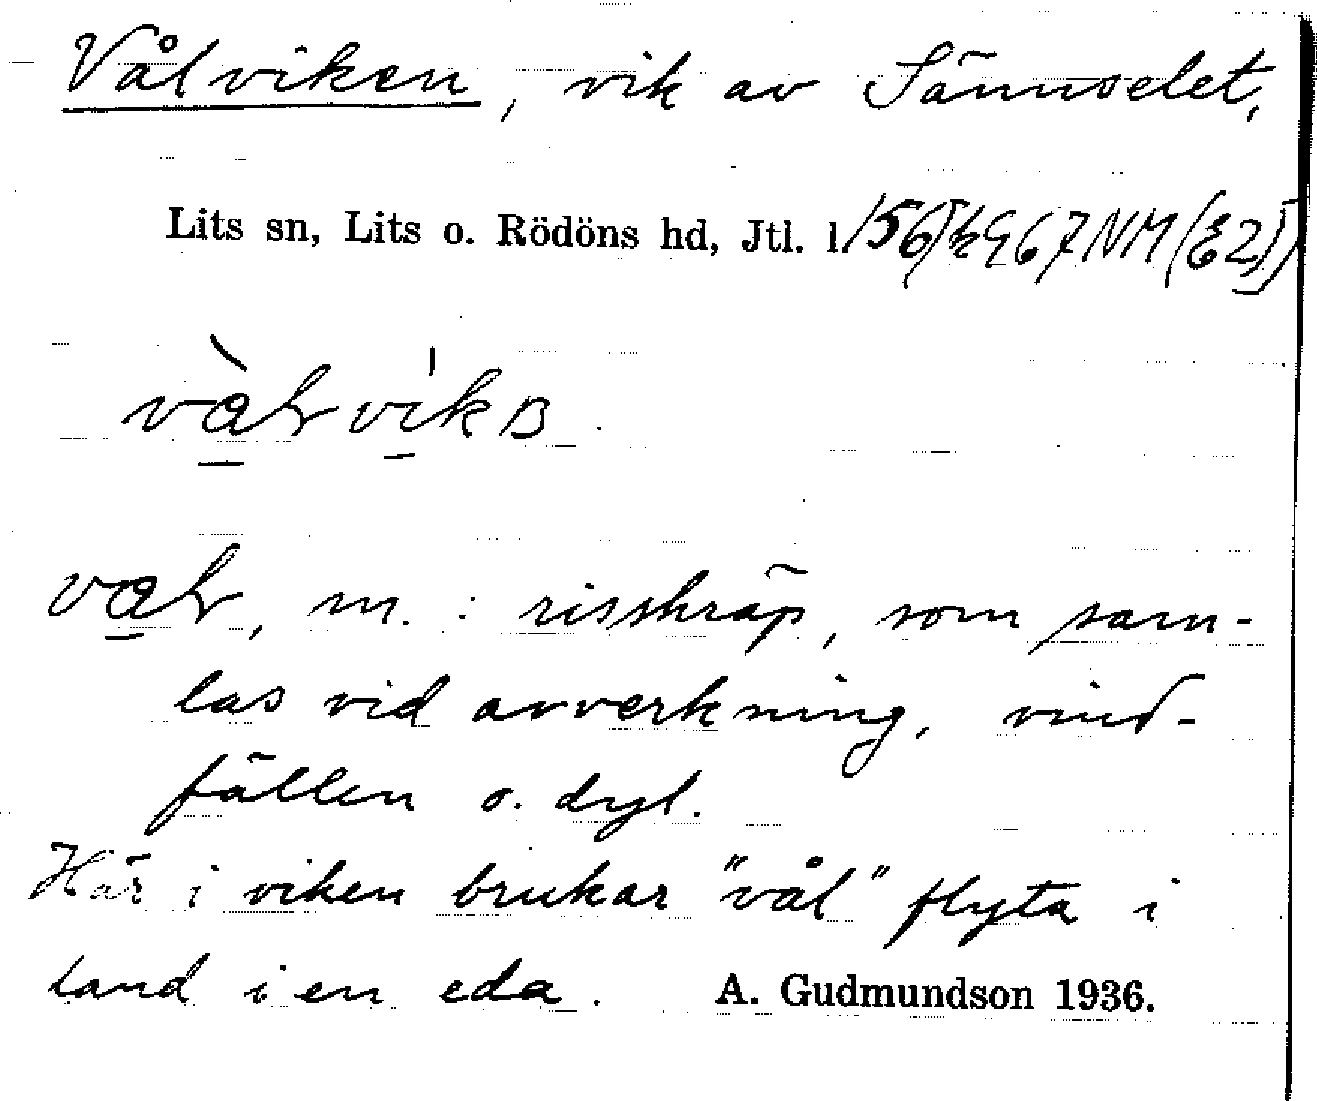 Vålviken, vik av Sännselet,
Lits sn, Lits o. Rödöns hd, Jtl. l
m.: risskräp, som sam-
las vid avverkning, vind-
fällen o. dyl.
Här i viken brukar "vål" flyta i
land i en eda. A. Gudmundson 1936.